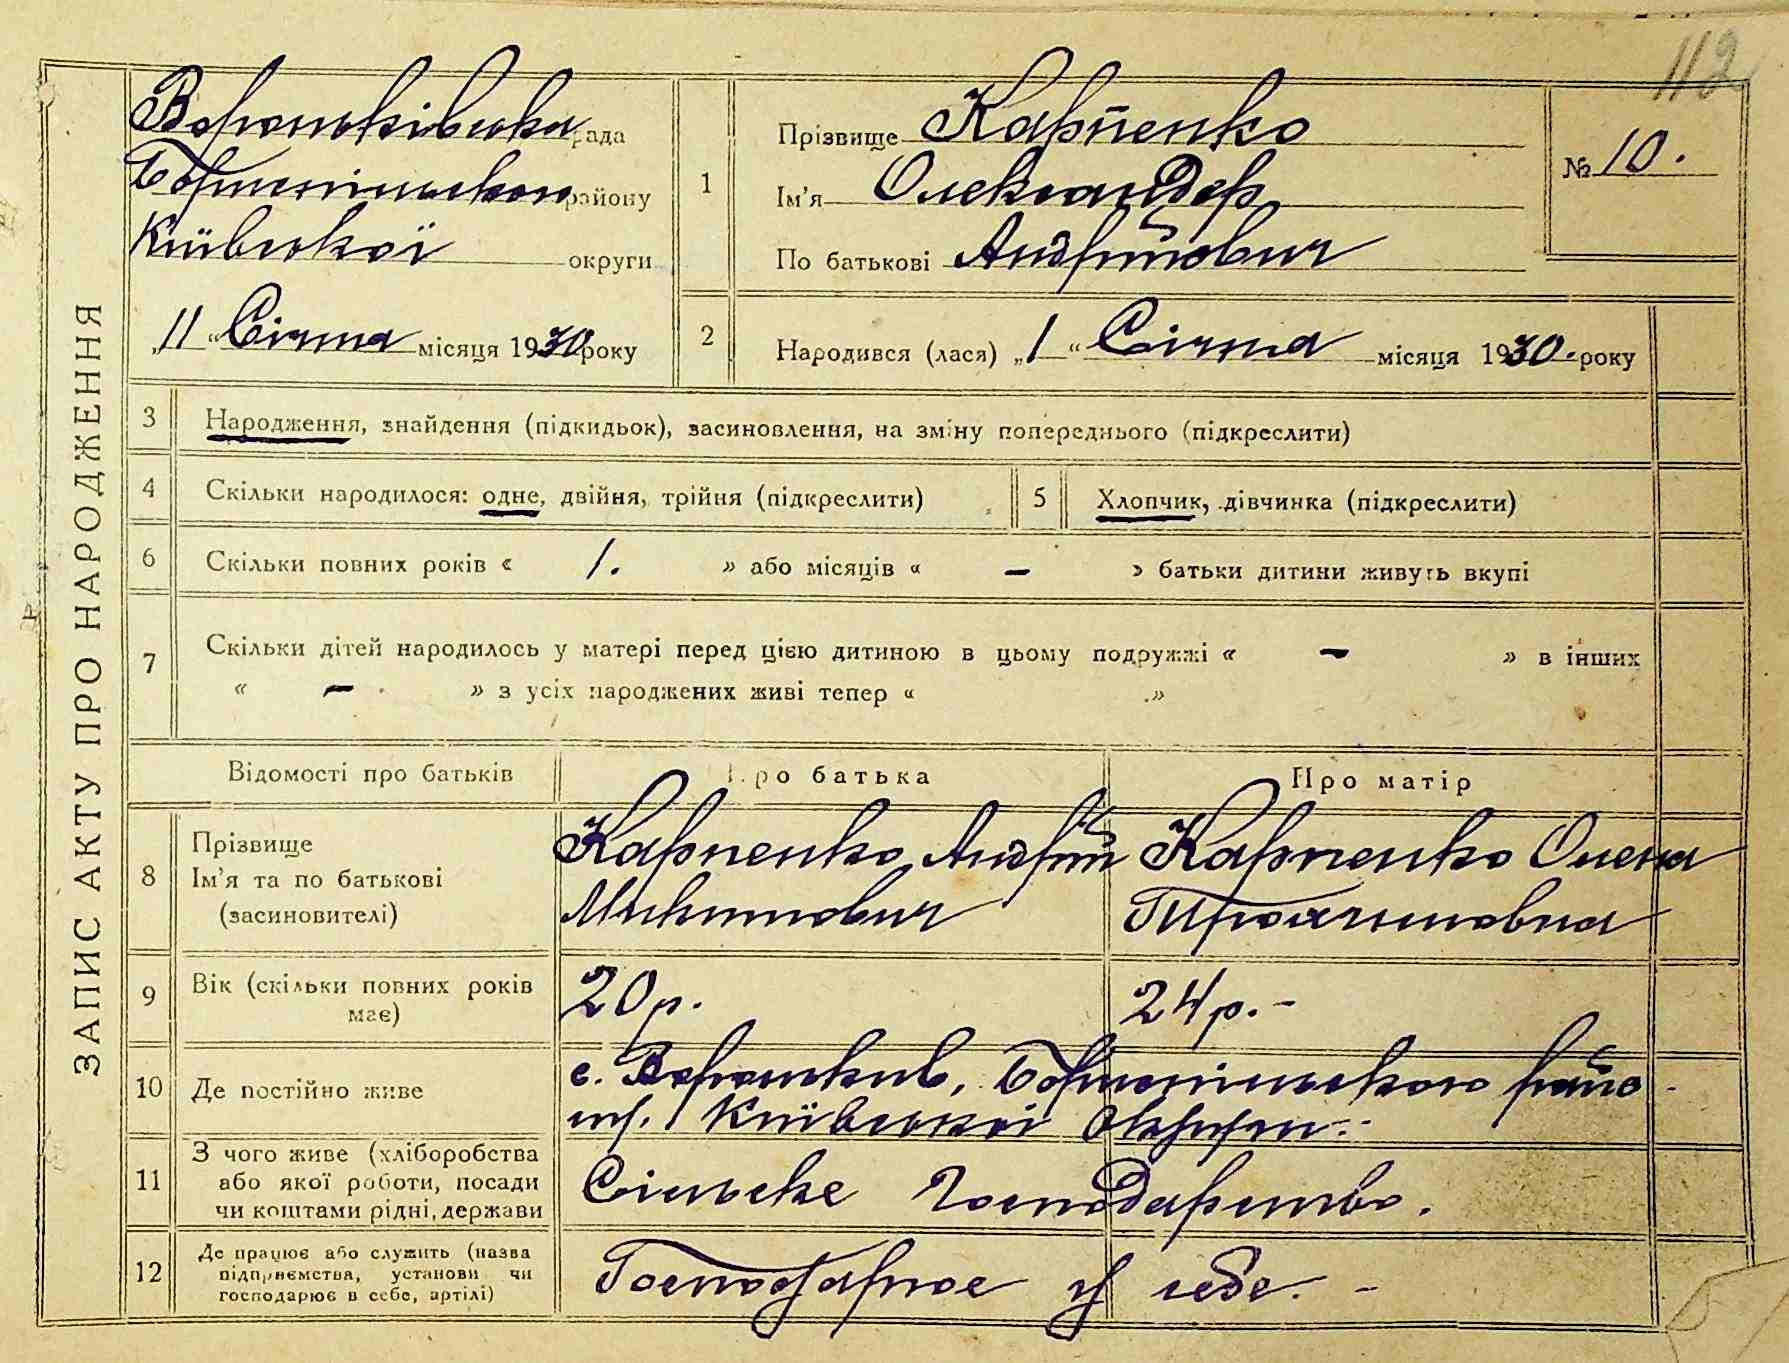 112
ЗАПИС АКТУ ПРО НАРОДЖЕННЯ
Вороньківська рада
Бориспільського району
Київської округи
„11“ Січня місяця 1930 року
1
Прізвище Карпенко
Ім'я Олександер
По батькові Андрійович
№ 10.
2
Народився (лася) „1“ Січня місяця 1930. року
3 Народження, знайдення (підкидьок), засиновлення, на зміну попереднього (підкреслити)
4 Скільки народилося: одне, двійня, трійня (підкреслити) 5 Хлопчик, дівчинка (підкреслити)
6 Скільки повних років « 1. » або місяців « – » батьки дитини живуть вкупі
7 Скільки дітей народилось у матері перед цією дитиною в цьому подружжі « – » в інших
« – » з усіх народжених живі тепер « »
Відомості про батьків Про батька Про матір
8 Прізвище
Ім'я та по батькові
(засиновителі)
Карпенко Андрій
Микитович
Карпенко Олена
9 Вік (скільки повних років
має)
20 р. 24 р. –
10 Де постійно живе
с. Вороньків, Бориспільського райо
ну. Київської Округи. –
11 З чого живе (хліборобства
або якої роботи, посади
чи коштами рідні, держави
Сільске Господарство.
12 Де працює або служить (назва
підприємства, установи чи
господарює в себе, артілі)
Господарює у себе. –